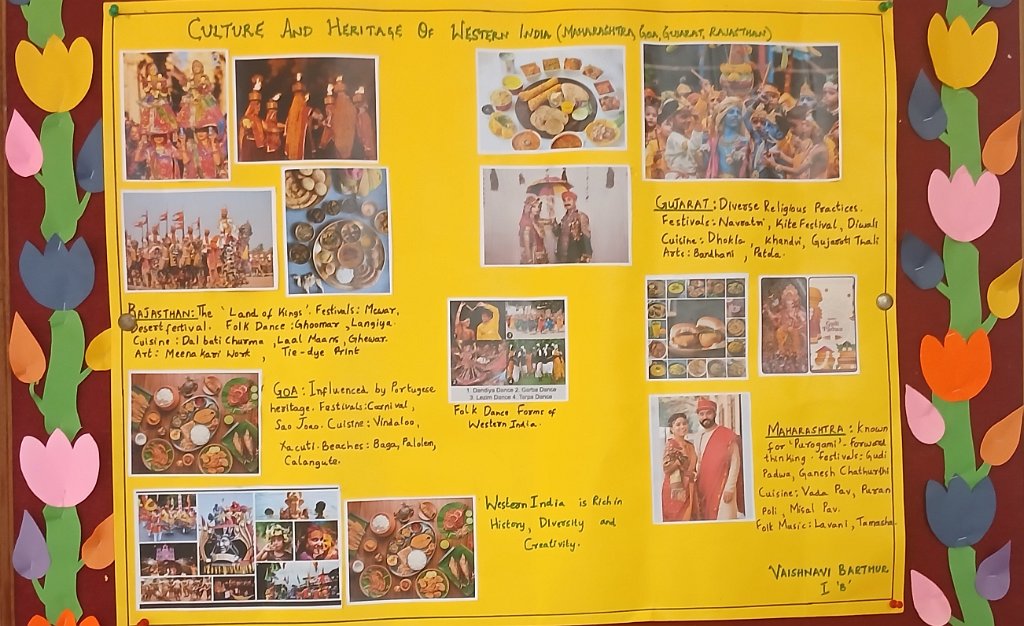 CULTURE AND HERITAGE OF WESTERN INDIA (MAHARASHTRA, GOA, GUJARAT, RAJASTHAN)
RAJASTHAN: The 'Land of Kings'. Festivals: Mewar,
Desert festival. Folk Dance: Ghoomar, Langiya.
Cuisine: Dal bati Churma, Laal Maans, Ghewar.
Art: Meena kari Work, Tie-dye Print
GOA: Influenced by Portugese
heritage. Festivals: Carnival,
Sao Joao. Cuisine: Vindaloo,
Xacuti. Beaches: Baga, Palolem,
Calangute.
1. Dandiya Dance 2. Garba Dance
3. Lezim Dance 4. Tarpa Dance
Folk Dance Forms of
Western India.
Western India is Rich in
History, Diversity and
Creativity.
GUJARAT: Diverse Religious Practices.
Festivals: Navratri, Kite Festival, Diwali
Cuisine: Dhokla, Khandvi, Gujarati Thali
Arts: Bandhani, Patola.
Gudi
Padwa
MAHARASHTRA: Known
for 'Purogami' - forward
thinking. Festivals: Gudi
Padwa, Ganesh Chathurthi
Cuisine: Vada Pav, Puran
Poli, Misal Pav.
Folk Music: Lavani, Tamasha.
VAISHNAVI BARTHUR
I 'B'